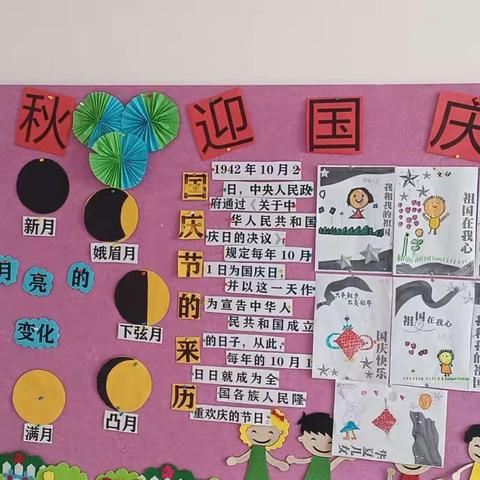 秋迎国庆
新月
娥眉月
月亮的
变化
下弦月
满月
凸月
国庆节的来历
1942年10月2
日，中央人民政
府通过《关于中
华人民共和国
庆日的决议》，
规定每年10月
1日为国庆日，
并以这一天作
为宣告中华人
民共和国成立
的日子，从此，
每年的10月1
日日就成为全
国各族人民隆
重欢庆的节日。
我和我的祖国
祖国在我心
国庆快乐
祖国在我心
华夏儿女